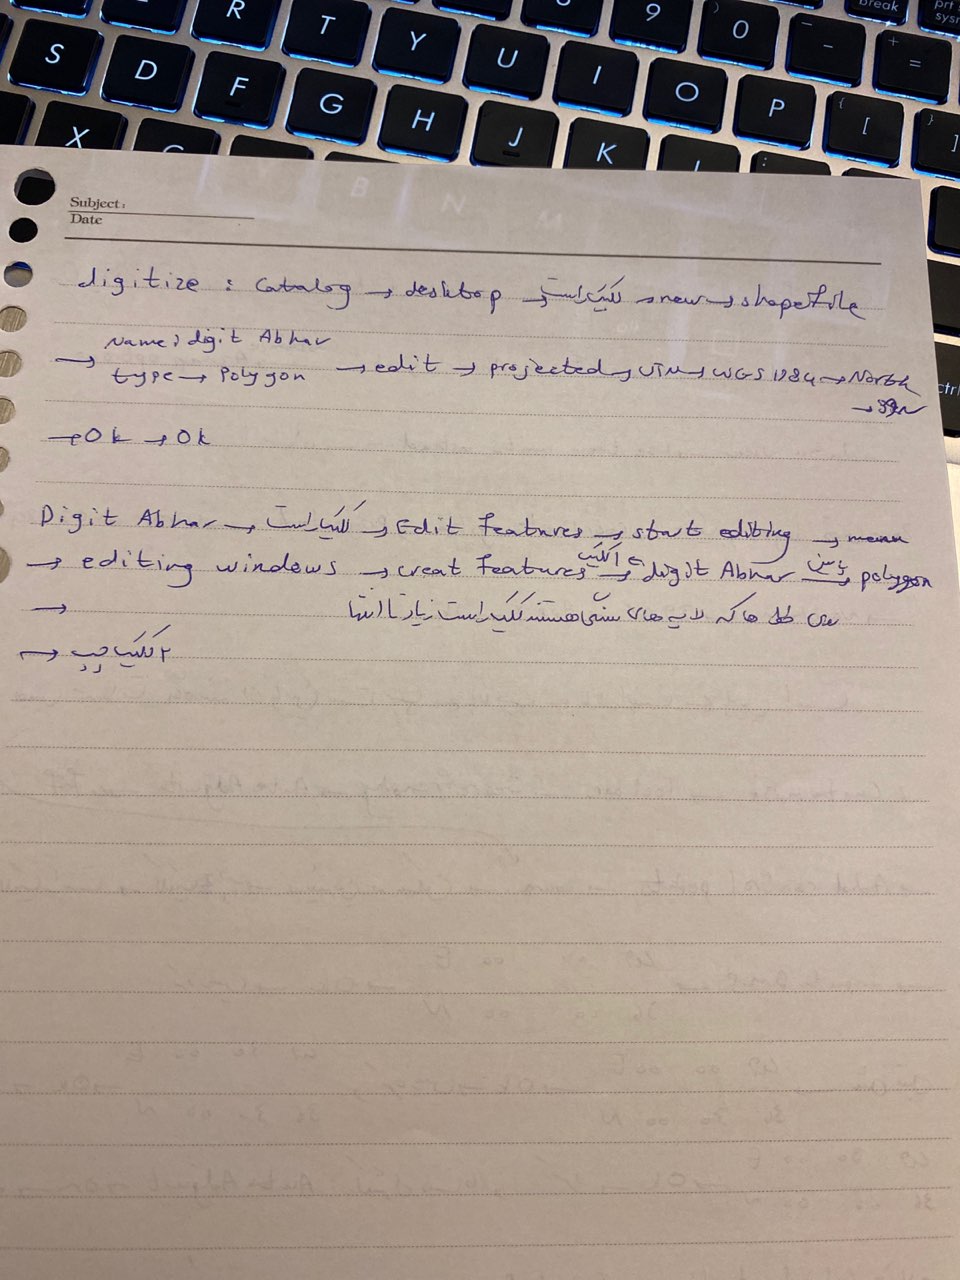 S D F G H J K R T Y U I O P 9 0 - + = { [ } ] : X break prt sysr ctrl
Subject:
Date
digitize : Catalog → desktop → کلیک راست → new → shapefile
→ Name : digit Abhar
type → Polygon → edit → projected → UTM → WGS 1984 → North
→ 39N
→ Ok → Ok
Digit Abhar → کلیک راست → Edit features → start editing → menu
→ editing windows → creat features → ۱ کلیک digit Abhar → پائین polygon
→ روی خط ها که لایه های سنگی هستند کلیک راست زیاد تا انتها
→ ۲ کلیک چپ